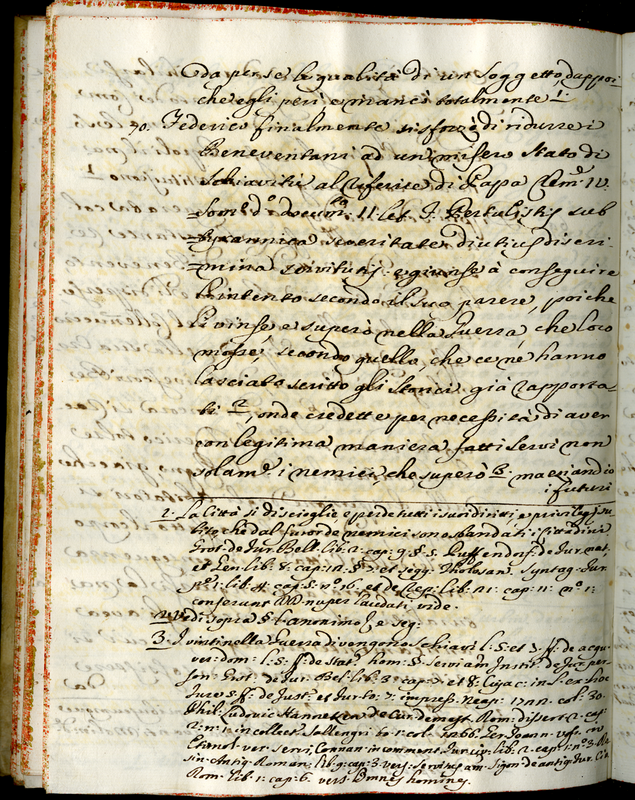 da per se le qualità di un Soggetto, dappoi-
che egli perì, e mancò totalmente 1:
70. Federico finalmente si sforzò di ridurre i
Beneventani ad un misero Stato di
Schiavitù al riferire di Papa Clem: IV.
sub
tyrannica severitate diutius discri-
mina servitutis: e giunse à conseguire
l'intento secondo il suo parere, poiche
li vinse e superò nella Guerra, che loro
mosse, secondo quello, che ce ne hanno
lasciato scritto gli Storici già rapporta-
ti 2, onde credette per necessità di aver
con legitima maniera fatti servi non
solam: i nemici, che superò 3. ma eziandio
i futuri
1. La Città si discioglie e perde tutti i suoi diritti, e privilegj su-
bito che dal furor de nemici sono sbandati i Cittadini
Grot: de Jur. Bell: lib: 2: cap: 9: §. 5. Puffendorf. de Jur. nat:
et Gen: lib: 8: cap: 12: et segg: Tholosan: Syntag: Jur:
lib: cap: 5: n: 16. et de Rep: lib: 21: cap: 11: n: 1:
conferunt DD. nuper laudati, vide.
2. Vedi sopra §. L'anonimo, e seg:
3. I vinti nella Guerra divengono Schiavi l: 5: et 3: ff: de acqu:
rer: dom: l: 5: ff: de Stat: hom: §. Servi am Instit: de Jur: per-
son: Grot: de Jur: Bel: lib: 3: cap: 7: et 8: Cujac: in l: ex hoc
Jure 5: ff: de Just: et Jur: to: 7: impress: Neap: 1722. col: 30.
Phil: Ludovic: Hanneken de Cur: domest: Rom: dissert: 2: cap:
2: n: 1: in collect: Sallengri to: 1: col: 1266: Ger: Joann: Voss: in
Etimol: ver: servi, Connan: in comment: Jur: civ: lib: 2: cap: 1: n: 3: Ro-
sin: Antiq: Roman: lib: 9: cap: 3: vers: servitus am: Sigon: de antiq: Jur: Civ:
Rom: lib: 1: cap: 6: vers: omnes homines.